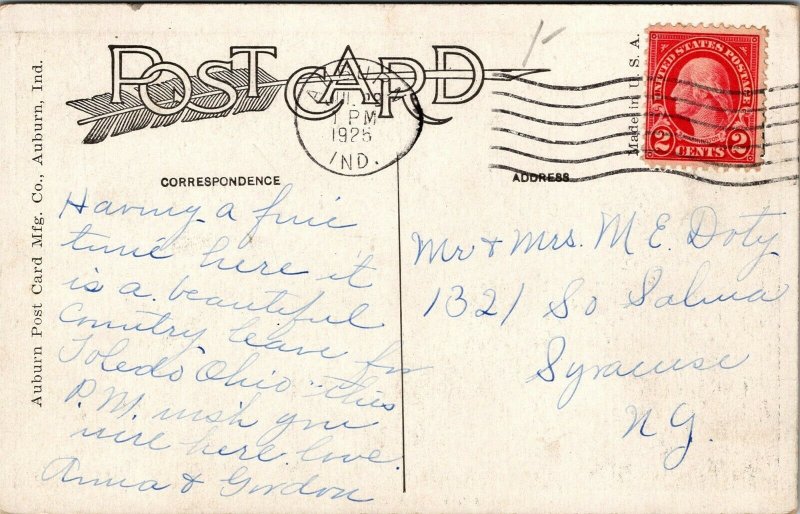 POST CARD
JUL
1 PM
1925
IND.
UNITED STATES POSTAGE
2 CENTS 2
Made in U. S. A.
Auburn Post Card Mfg. Co., Auburn, Ind.
CORRESPONDENCE
Having a fine
time here it
is a beautiful
country leave for
Toledo Ohio this
P.M. wish you
were here love.
Anna & Gordon
ADDRESS
Mr & Mrs. M E. Doty
1321 So Salina
Syracuse
N Y.